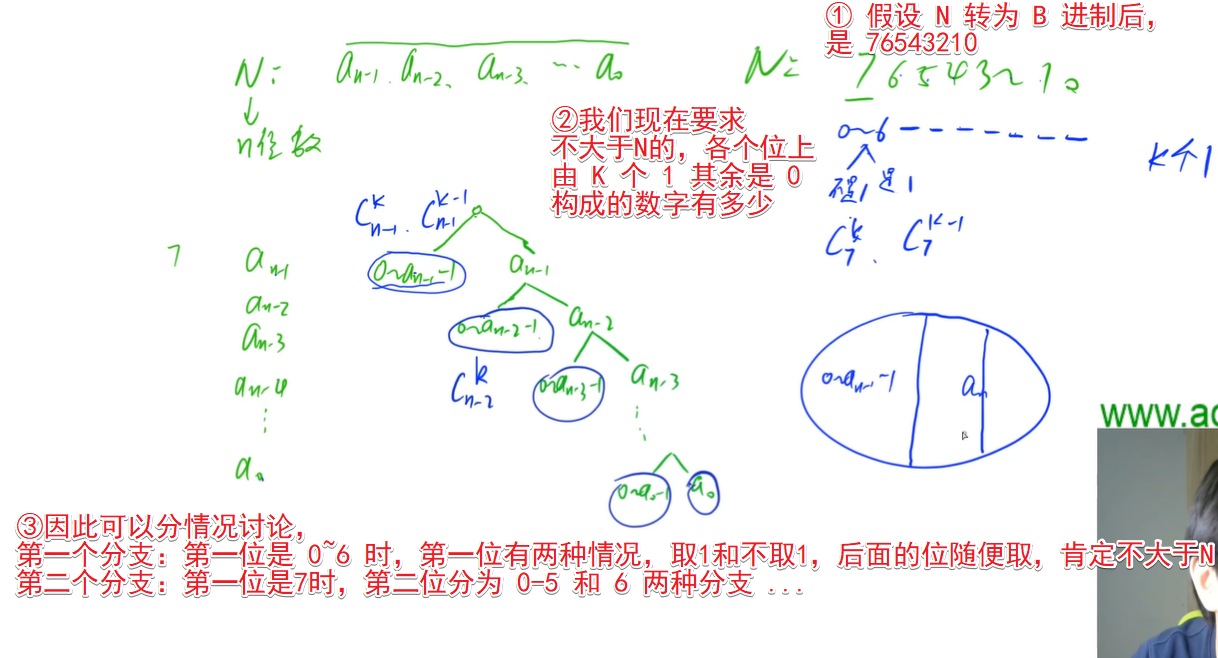 ① 假设 N 转为 B 进制后,
是 76543210
N: a_{n-1}, a_{n-2}, a_{n-3}, … a_0
N: 76543210
↓
n位数
②我们现在要求
不大于N的, 各个位上
由 K 个 1 其余是 0
构成的数字有多少
0~6 - - - - - - -
K个1
是1
C_7^k, C_7^{k-1}
C_{n-1}^k, C_{n-1}^{k-1}
7
a_{n-1}
0~a_{n-1}-1
a_{n-1}
a_{n-2}
0~a_{n-2}-1
a_{n-2}
a_{n-3}
C_{n-2}^k
0~a_{n-3}-1
a_{n-3}
0~a_{n-1}-1
a_n
a_{n-4}
⋮
⋮
a_0
0~a_0-1
a_0
www.ac
③因此可以分情况讨论,
第一个分支: 第一位是 0~6 时, 第一位有两种情况, 取1和不取1, 后面的位随便取, 肯定不大于N
第二个分支: 第一位是7时, 第二位分为 0-5 和 6 两种分支 ...